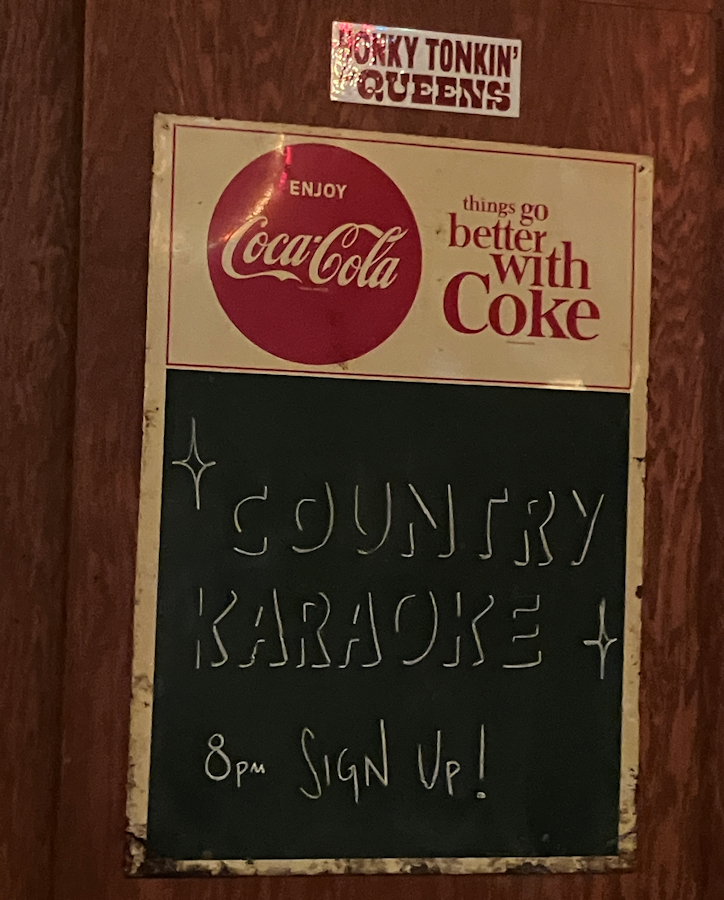 HONKY TONKIN'
in QUEENS
ENJOY
Coca-Cola
things go
better
with
Coke
COUNTRY
KARAOKE
8pm SIGN UP!